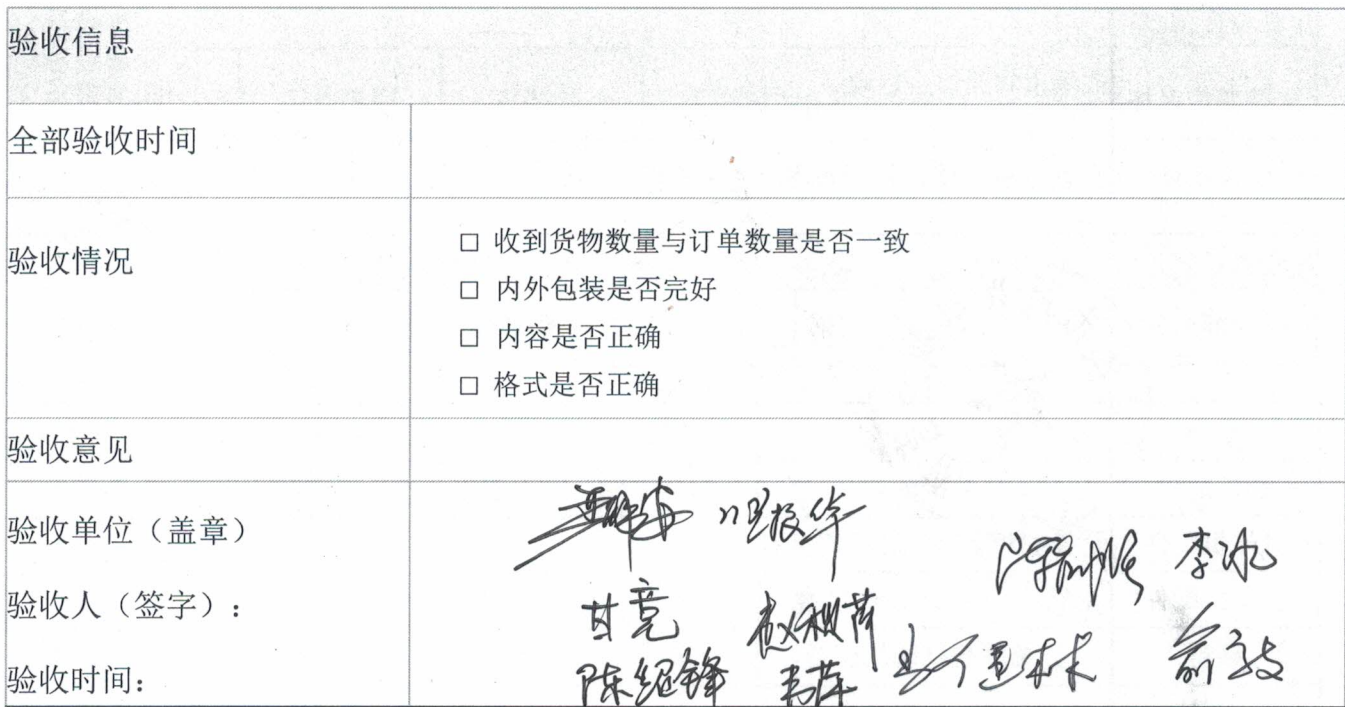 验收信息
全部验收时间
验收情况
□ 收到货物数量与订单数量是否一致
□ 内外包装是否完好
□ 内容是否正确
□ 格式是否正确
验收意见
验收单位（盖章）
验收人（签字）：
李冰
甘亮
陈绍锋
验收时间：